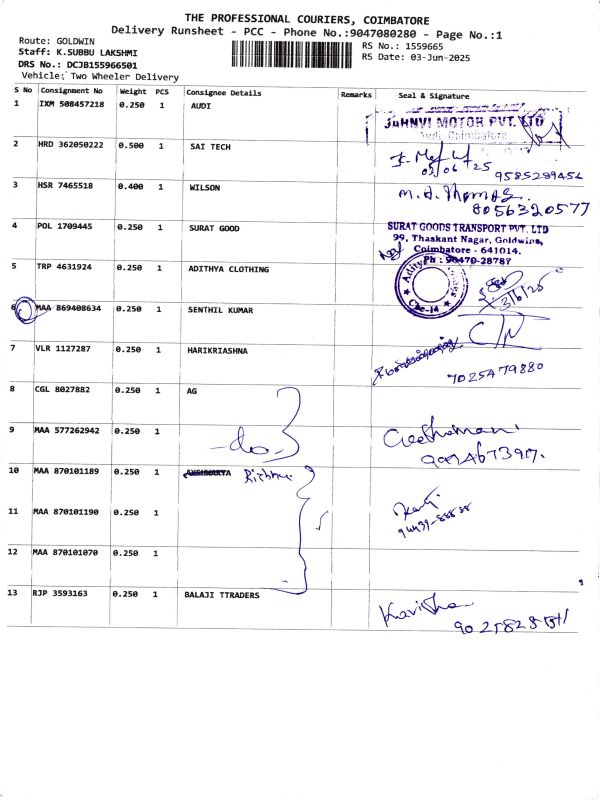 THE PROFESSIONAL COURIERS, COIMBATORE
Delivery Runsheet - PCC - Phone No.:9047080280 - Page No.:1
Route: GOLDWIN
Staff: K.SUBBU LAKSHMI
DRS No.: DCJB155966501
Vehicle: Two Wheeler Delivery
RS No.: 1559665
RS Date: 03-Jun-2025
S No Consignment No Weight PCS Consignee Details Remarks Seal & Signature
1 IXM 508457218 0.250 1 AUDI
JAHNVI MOTOR PVT. LTD
Audi Coimbatore
2 HRD 362050222 0.500 1 SAI TECH
03/06/25
9585289456
3 HSR 7465518 0.400 1 WILSON
M.A. Thomas
8056320577
4 POL 1709445 0.250 1 SURAT GOOD
SURAT GOODS TRANSPORT PVT. LTD
99, Thaskant Nagar, Goldwins,
Coimbatore - 641014.
Ph : 90470-28787
5 TRP 4631924 0.250 1 ADITHYA CLOTHING
Cbe-14
3/6/25
6 MAA 869408634 0.250 1 SENTHIL KUMAR
7 VLR 1127287 0.250 1 HARIKRIASHNA
7025479880
8 CGL 8027882 0.250 1 AG
9 MAA 577262942 0.250 1
-do-
Geethamani
10 MAA 870101189 0.250 1
11 MAA 870101190 0.250 1
94439-88888
12 MAA 870101070 0.250 1
13 RJP 3593163 0.250 1 BALAJI TTRADERS
Kavitha